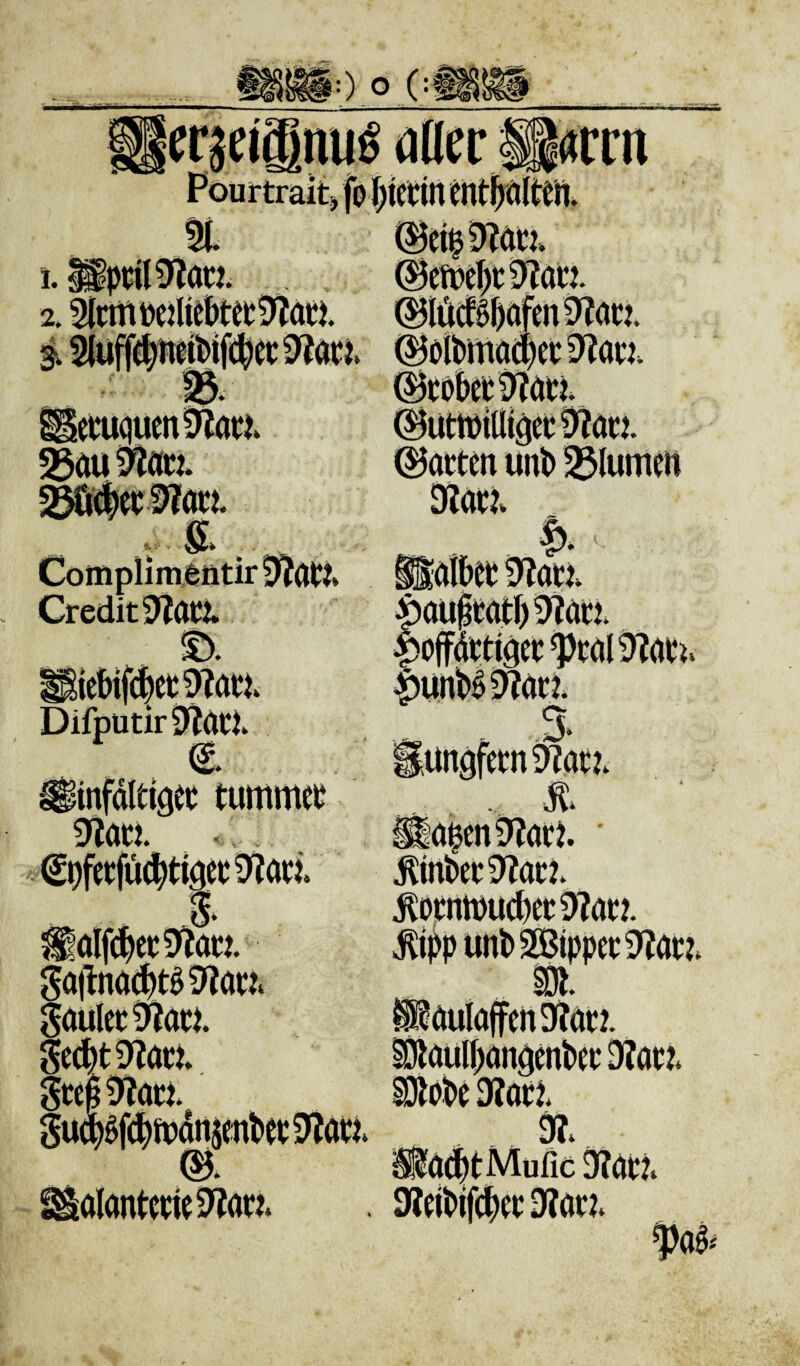 :) o (:
Verzeichnuß aller Narrn
Pourtrait, so hierin enthalten.
A.
1. April Narr.
2. Arm verliebter Narr.
3. Auffschneidischer Narr.
B.
Peruquen Narr.
Bau Narr.
Bücher Narr.
C.
Complimentir Narr.
Credit Narr.
D.
Diebischer Narr.
Disputir Narr.
E.
Einfältiger tummer
Narr.
Eyfersüchtiger Narr.
F.
Falscher Narr.
Fastnachts Narr.
Fauler Narr.
Fecht Narr.
Freß Narr.
Fuchsschwänzender Narr.
G.
Galanterie Narr.
Geitz Narr.
Gewehr Narr.
Glückshafen Narr.
Goldmacher Narr.
Grober Narr.
Gutwilliger Narr.
Garten und Blumen
Narr.
H.
Halber Narr.
Haußrath Narr.
Hoffärtiger Pral Narr.
Hunds Narr.
J.
Jungfern Narr.
K.
Katzen Narr.
Kinder Narr.
Kornwucher Narr.
Kipp und Wipper Narr.
M.
Maulaffen Narr.
Maulhangender Narr.
Mode Narr.
N.
Nacht Music Narr.
Neidischer Narr.
Pas-